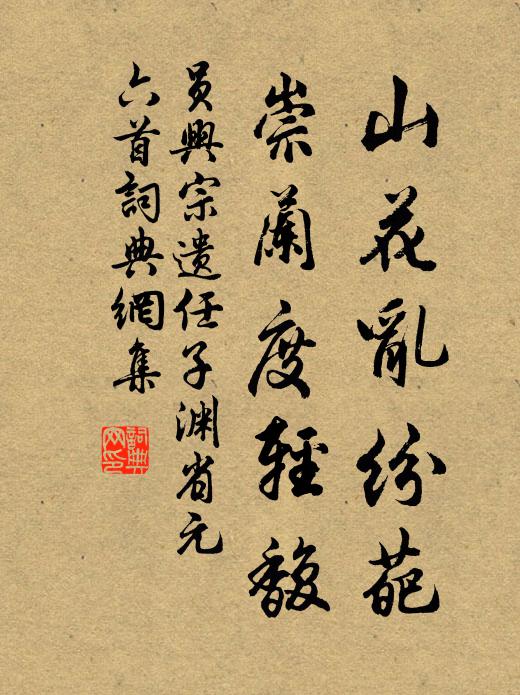 山花亂紛葩
崇蘭度輕馥
員興宗遺任子淵省元
六首詞典網集
詞典網印